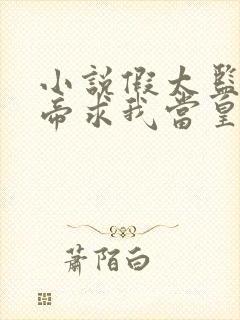 小說假太監
帝求我當皇
蕭陌白